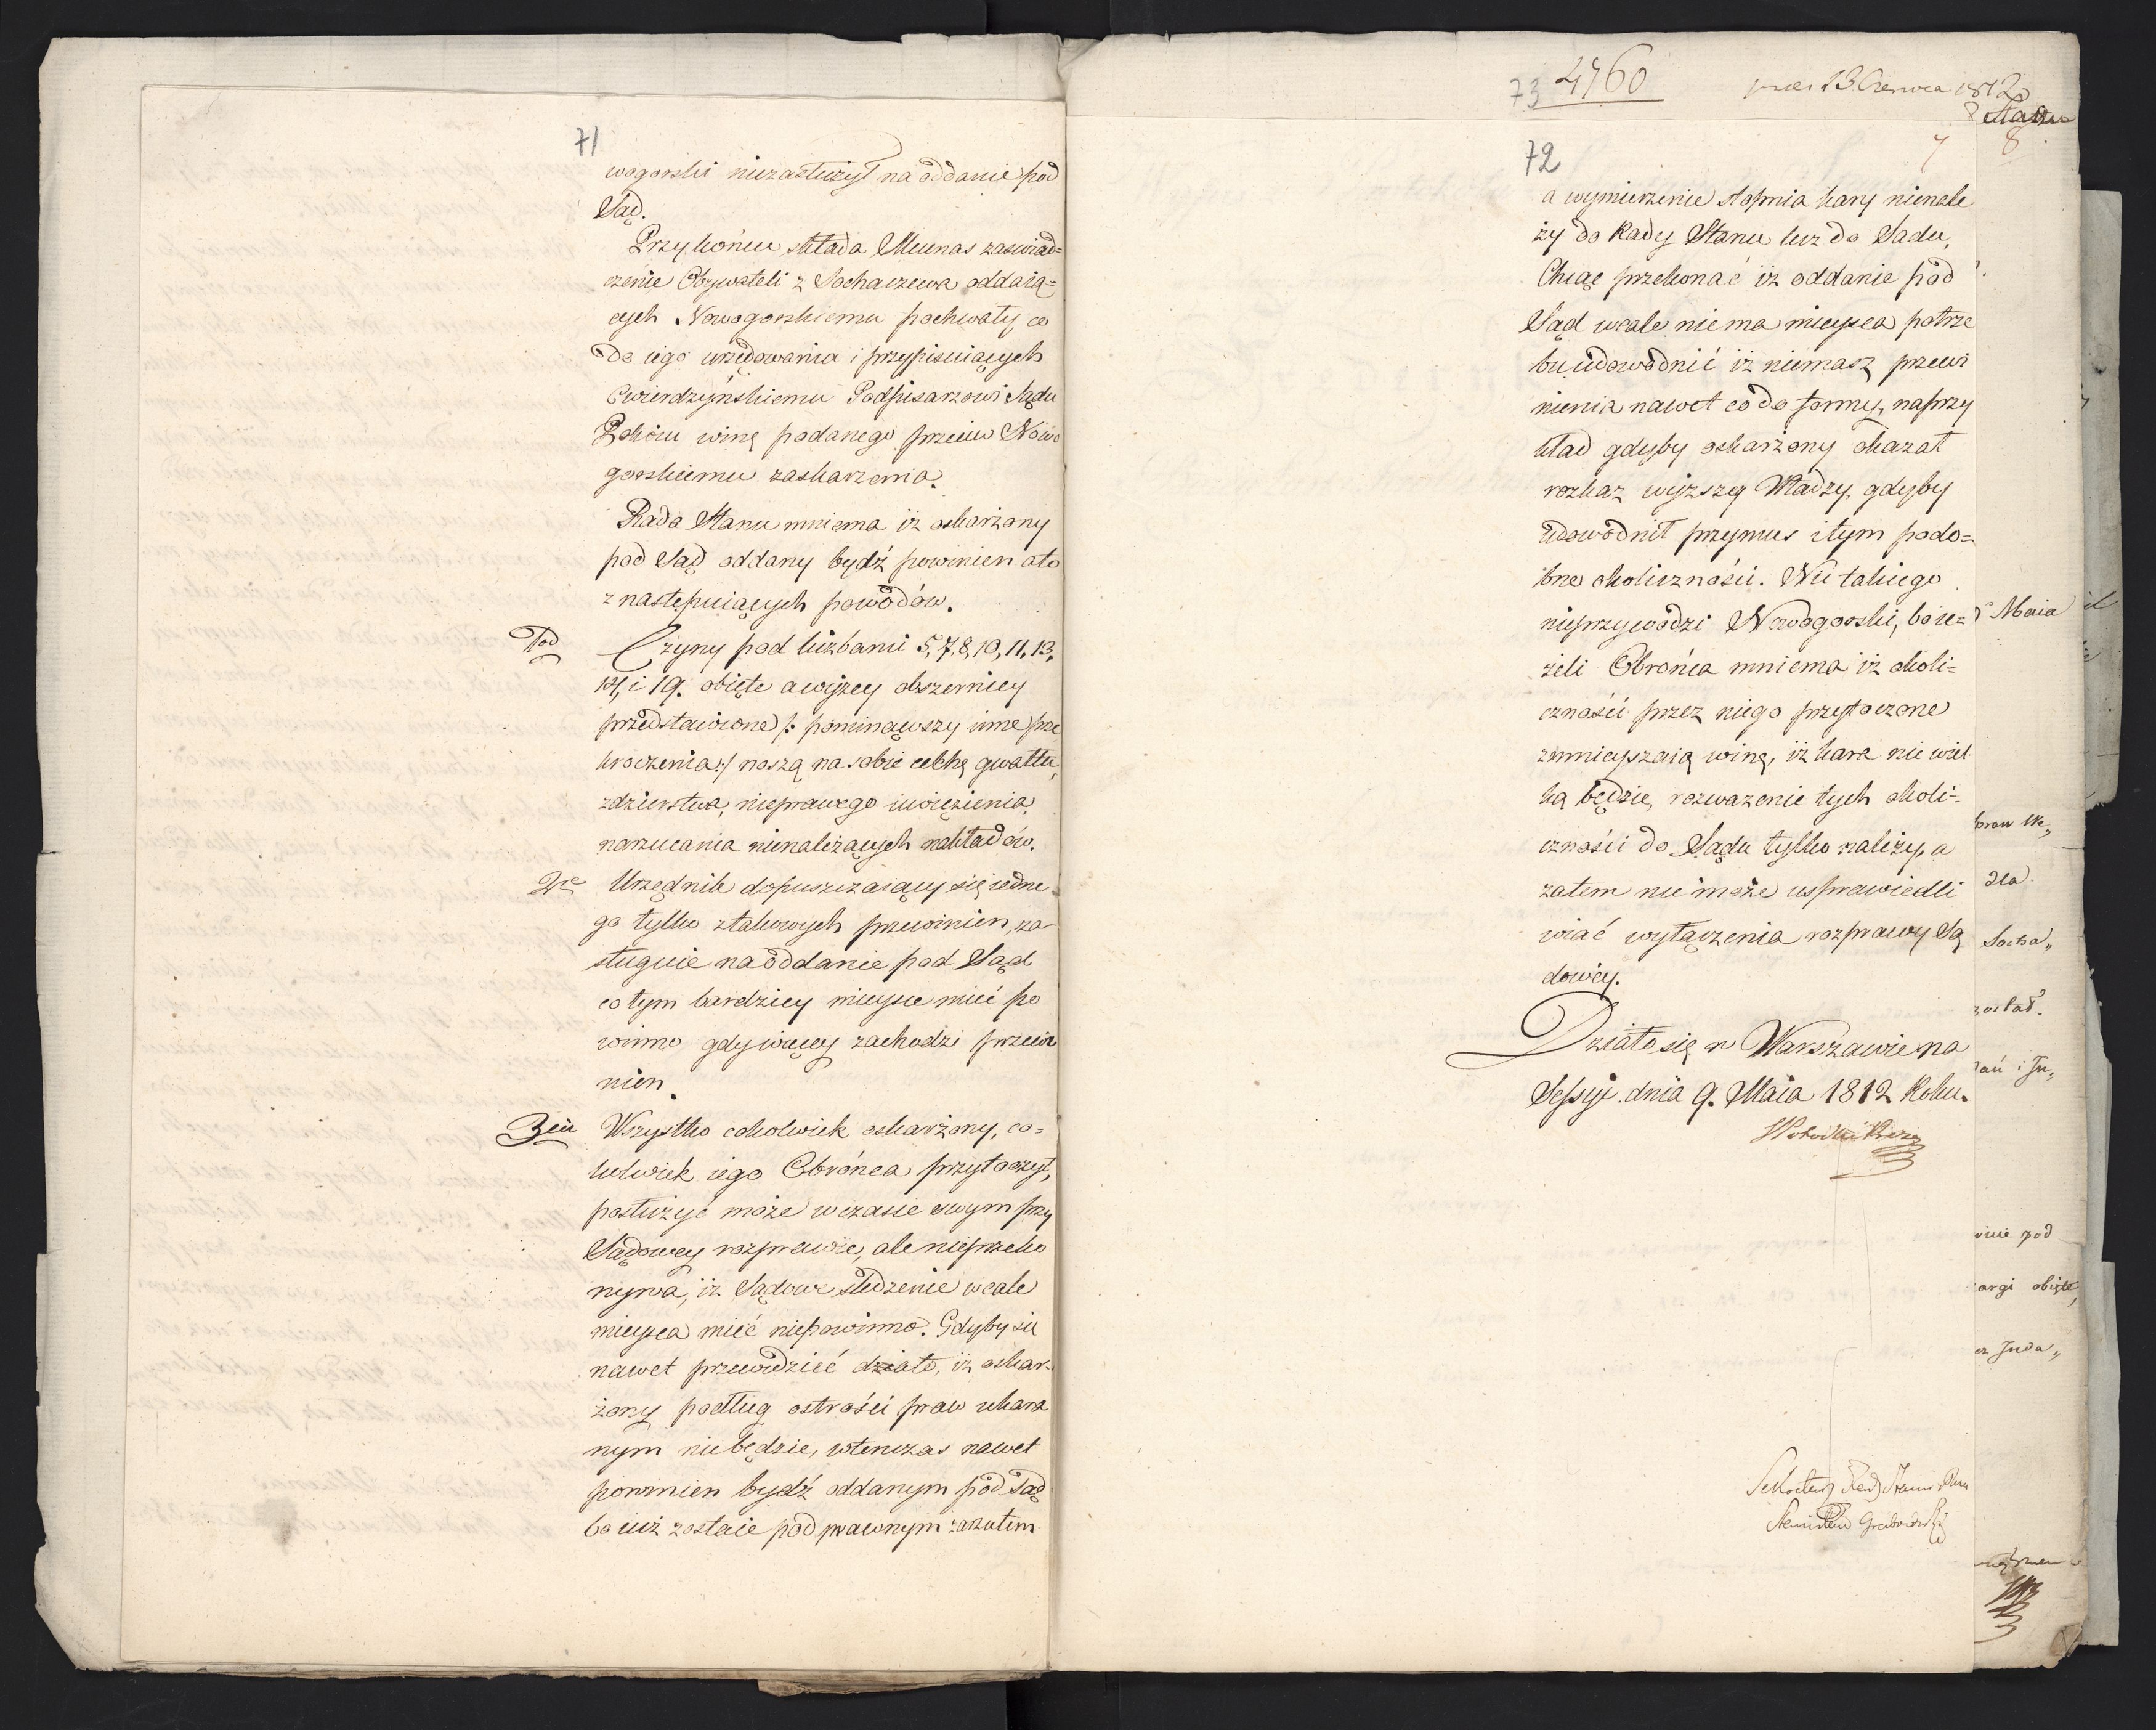 71
wogorski niezasłużył na oddanie pod
Sąd.
Przykońcu składa Mecenas zaswiad=
czenie Obywateli z Sochaczewa oddaią=
cych Nowogorskiemu pochwały, co
do iego urzędowania i przypisuiących
Cwierdzyńskiemu Podpisarzowi Sądu
Pokoiu winę podanego przeciw Nowo
gorskiemu zaskarzenia.
Rada Stanu mniema iż oskarżony
pod Sąd oddany bydź powinien a to
z następuiących powodów.
1od Czyny pod liczbami 5, 7, 8, 10, 11, 13,
14, i 19. obięte a wyżey obszerniey
przedstawione /: pominąwszy inne prze
kroczenia :/ noszą na sobie cechę gwałtu,
zdzierstwa, nieprawego uwięzienia,
narzucania nienależących nakładów.
2re Urzędnik dopuszczaiący się iedne-
go tylko z takowych przewinien, za-
sługuie na oddanie pod Sąd
co tym bardziey mieysce mieć po
winno gdy więcey zachodzi przewi
nien.
3cie Wszystko cokolwiek oskarżony, co=
kolwiek iego Obrońca przytoczył,
posłużyć może w czasie swym przy
Sądowey rozprawie, ale nieprzeko
nywa, iż Sądowe śledzenie wcale
mieysca mieć niepowinno. Gdyby się
nawet przewidzieć działo, iż oskar-
żony podług ostrości praw ukara
nym niebędzie, wtenczas nawet
powinien bydź oddanym pod Sąd
bo iuż zostaie pod prawnym zarzutem
73 4760 13 Czerwca 1812
72
7 8
a wymierzenie stopnia kary nienale
ży do Rady Stanu lecz do Sadu,
Chcąc przekonać iż oddanie pod
Sąd wcale niema mieysca potrze
ba udowodnić iż niemasz przewi
nienia nawet co do formy, naprzy
kład gdyby oskarżony okazał
rozkaz wyższey Władzy, gdyby
udowodnił przymus i tym podo=
bne okoliczności. Nic takiego
nieprzywodzi Nowogorski, bo ie=
żeli Obrońca mniema iż okoli=
czności przez niego przytoczone
zmnieyszaią winę, iż kara nie wiel
ką będzie, rozważenie tych okoli=
czności do Sądu tylko należy, a
zatem nie może usprawiedli
wiać wyłączenia rozprawy Są
dowey.
Działo się w Warszawie na
Sessyi dnia 9. Maia 1812 Roku.
Sekretarz Rady Stanu
Stanisław Grabowski
Maia
dla
Socha„
został.
pod
obięte,